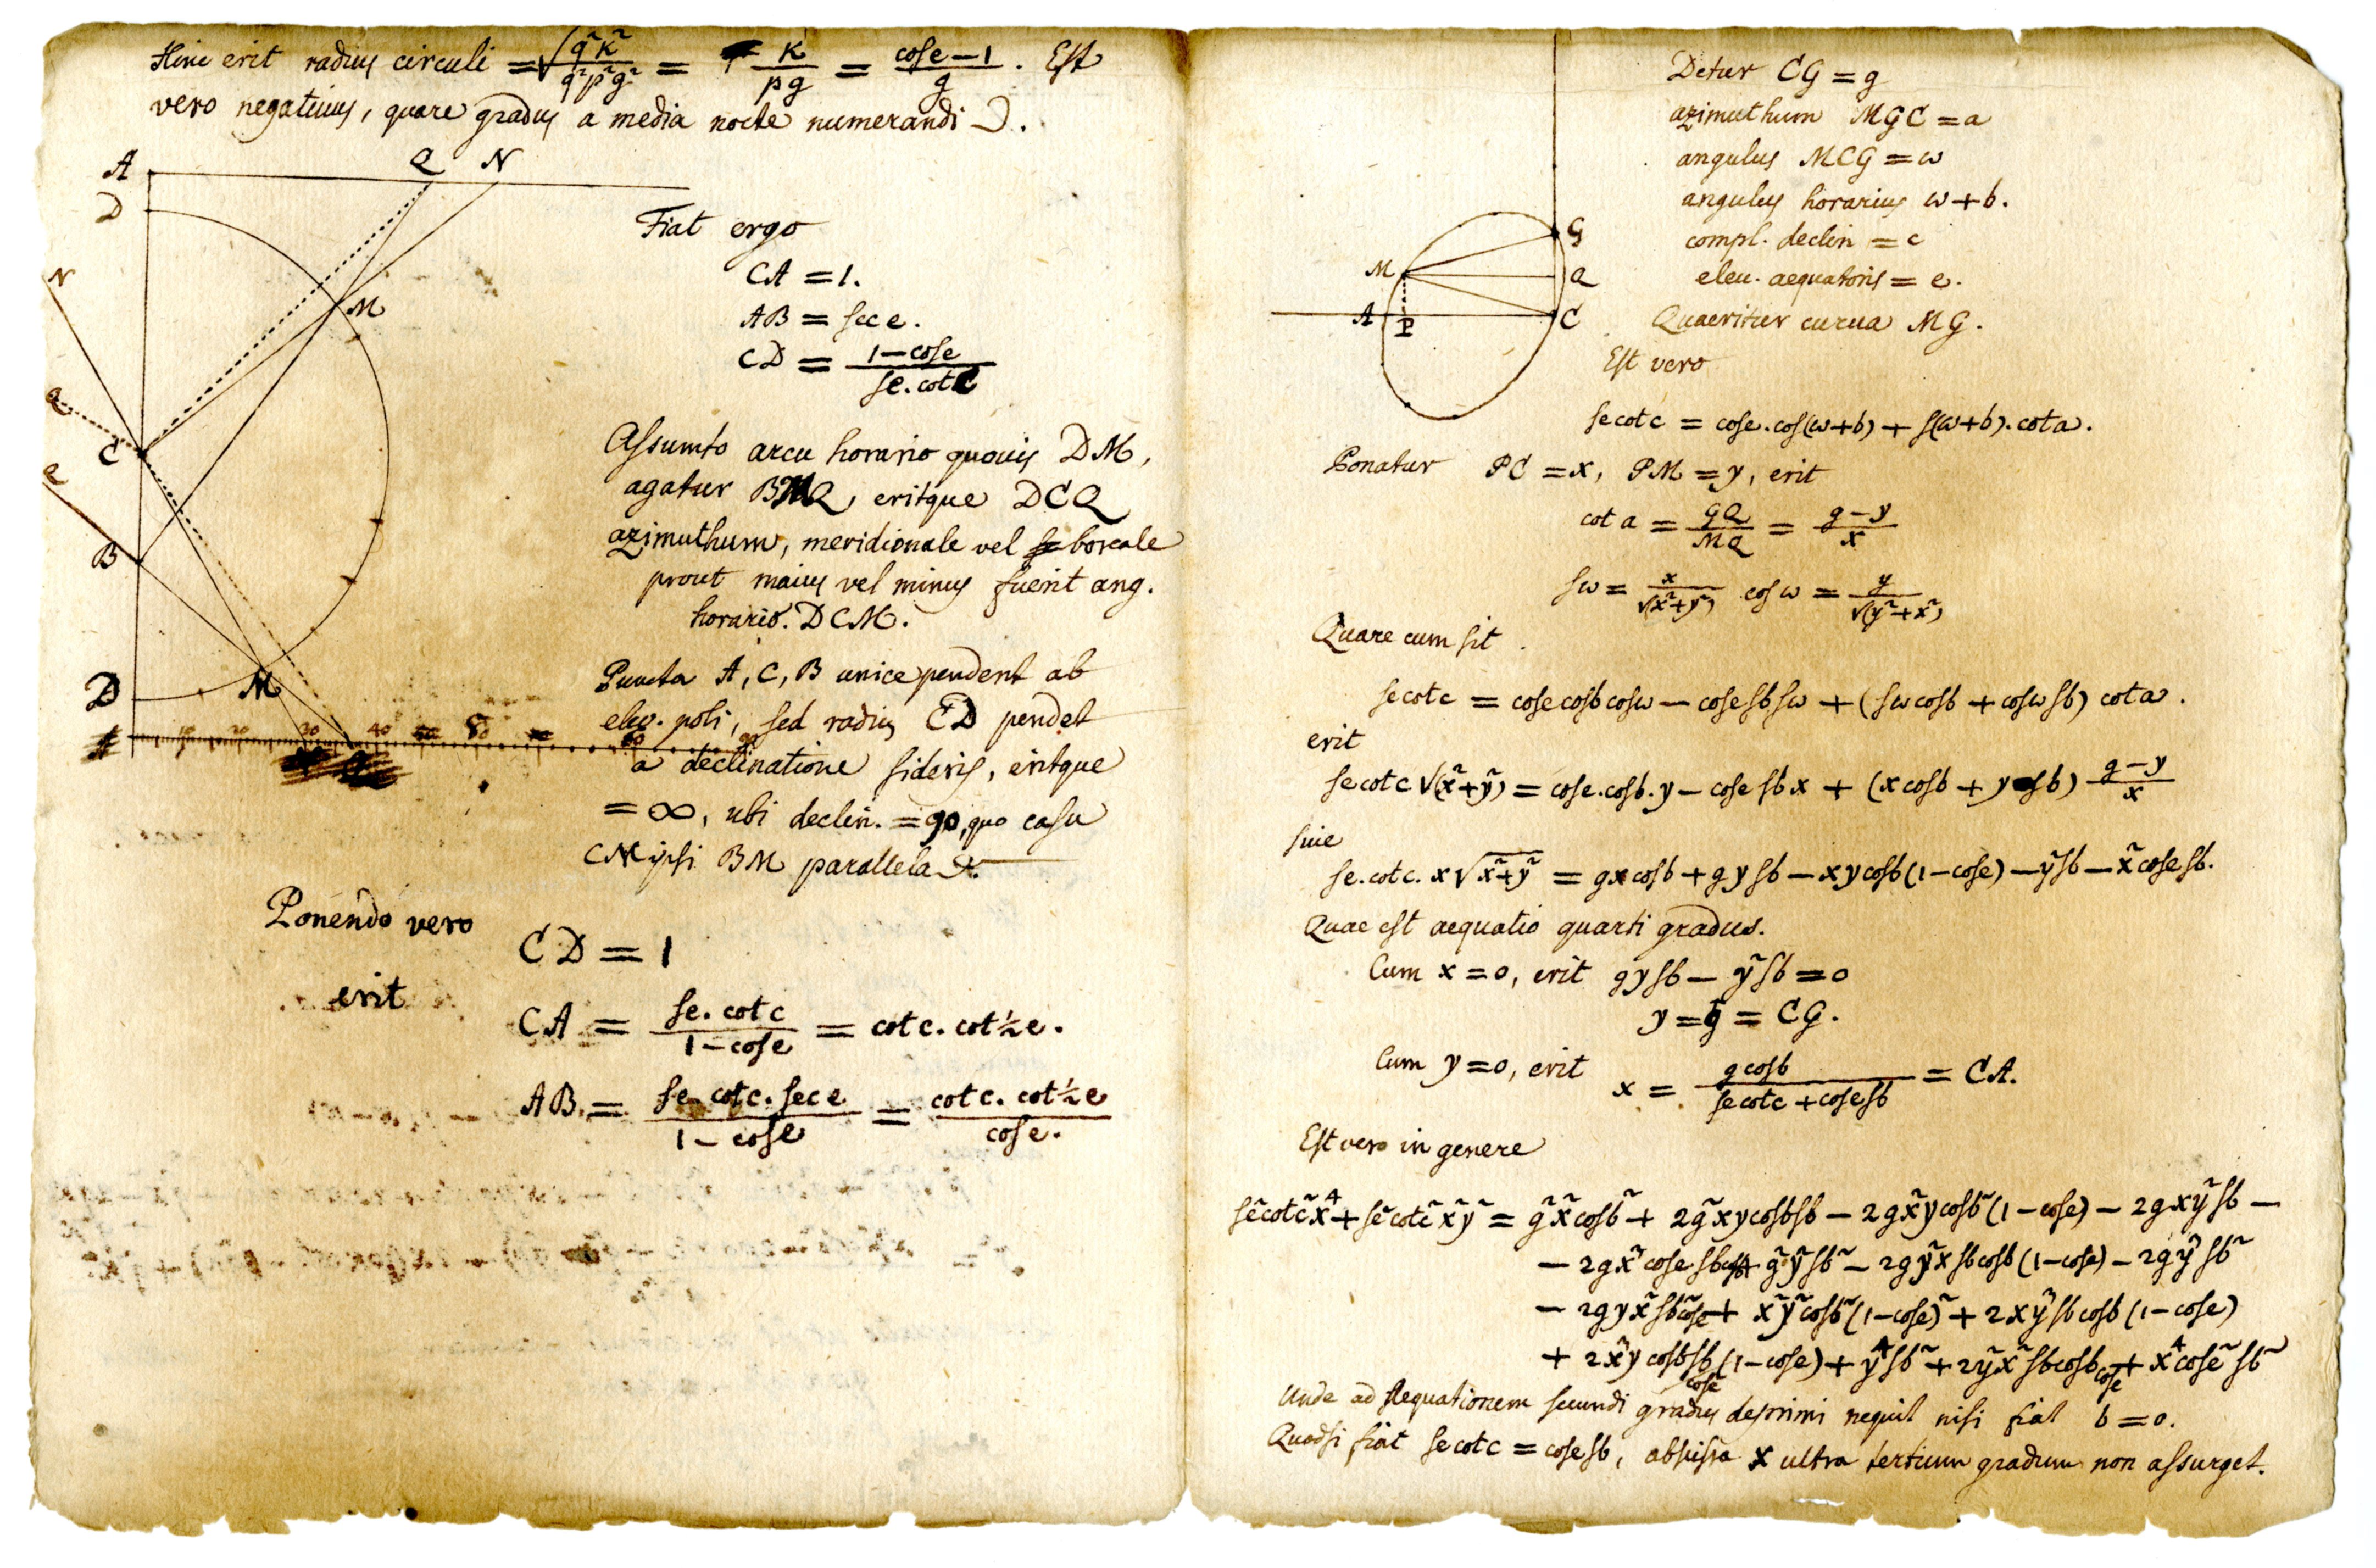 Hinc erit radius circuli = √(q²κ²/q²p²g²) = κ/pg = (cose−1)/g. Est
vero negativus, quare gradus a media nocte numerandi
A Q N
D
N
M
Q
C
Q
B
D M
10 20 30 40
Fiat ergo
CA = 1.
AB = sec e.
CD = (1−cose)/(se.cotc)
Assumto arcu horario quouis DM,
agatur BMQ, eritque DCQ
azimuthum, meridionale vel boreale
prout maius vel minus fuerit ang.
horario. DCM.
Puncta A, C, B unice pendent ab
elev. poli, sed radius CD pendet
a declinatione sideris, eritque
= ∞, ubi declin. = 90, quo casu
CN ipsi BM parallela
Ponendo vero
CD = 1
erit
CA = (se. cotc)/(1−cose) = cotc. cot½e.
AB. = (se cotc. sec e)/(1−cose) = (cotc. cot½e)/(cose.)
Detur CG = g
azimuthum MGC = a
angulus MCG = ω
angulus horarius ω+b.
compl. declin = c
eleu. aequatoris = e.
Quaeritur curua MG.
G
M Q
A P C
Est vero
secotc = cose.cos(ω+b) + s(ω+b).cota.
Ponatur PC = x, PM = y, erit
cot a = GQ/MQ = (g−y)/x
sω = x/√(x²+y²) cosω = y/√(y²+x²)
Quare cum sit
secotc = cosecosbcosω − cosesbsω + (sωcosb + cosωsb) cota.
erit
secotc√(x²+y²) = cose.cosb.y − cose sbx + (xcosb + ysb) (g−y)/x
siue
se.cotc. x√x²+y² = gxcosb + gysb − xycosb(1−cose) − y²sb − x²cosesb.
Quae est aequatio quarti gradus.
Cum x = 0, erit gysb − y²sb = 0
y = g = CG.
Cum y = 0, erit x = gcosb/(secotc + cosesb) = CA.
Est vero in genere
se²cotc²x⁴ + se²cotc²x²y² = g²x²cosb² + 2g²xycosbsb − 2gx²ycosb²(1−cose) − 2gxy²sb −
− 2gx³cosesbcosb + g²y²sb² − 2gy²xsbcosb(1−cose) − 2gy³sb²
− 2gyx²sb²cose + x²y²cosb²(1−cose)² + 2xy³sbcosb(1−cose)
+ 2x³ycosbsb(1−cose)cose + y⁴sb² + 2y²x²sbcosbcose + x⁴cose²sb²
Unde ad Aequationem secundi gradus deprimi nequit nisi fiat b = 0.
Quodsi fiat secotc = cosesb, abscissa x ultra tertium gradum non assurget.